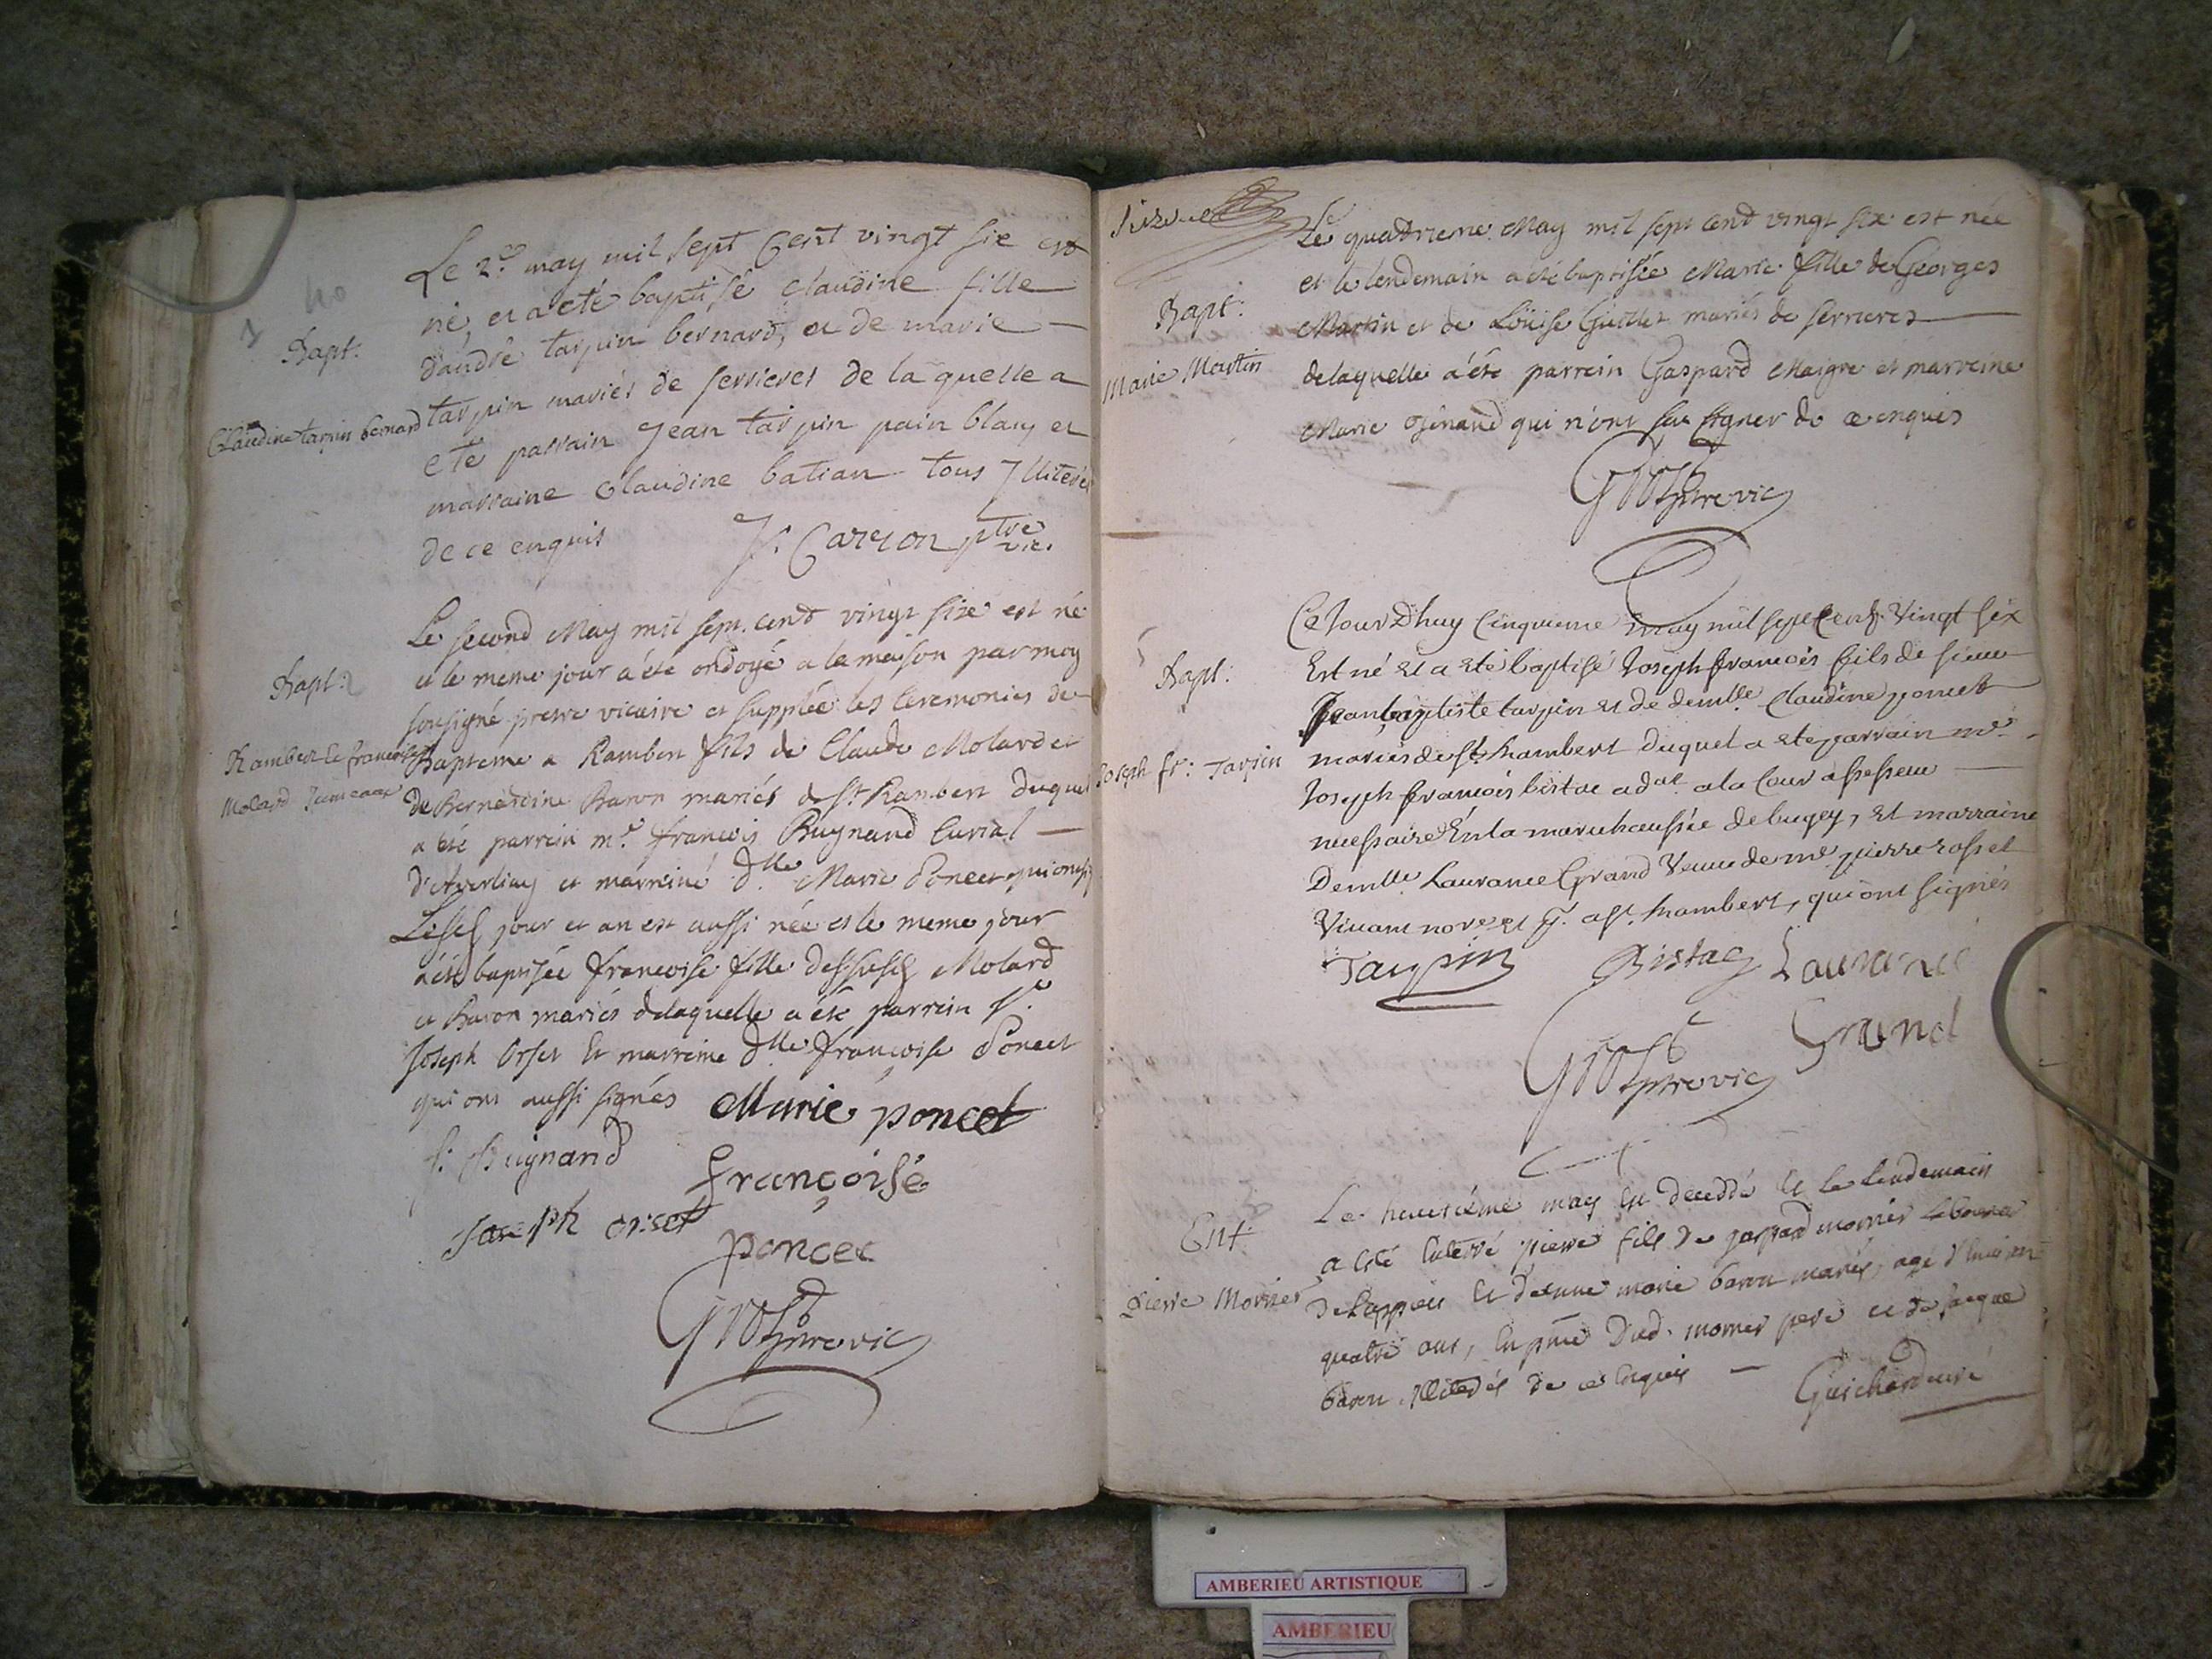 Bapt.
Claudine tarpin bernard
Le 2e may mil sept Cent vingt six est
né, et a eté baptisé claudine fille
d'andré tarpin bernard, et de marie —
tarpin mariés de serrieres de la quelle a
eté parrain Jean tarpin pain blanc et
marraine Claudine batian tous Illiterés
de ce enquis
J. Carron ptre vic.
Bapt.
Rambert et francoise
Molard Jumeaux
Le second May mil sept. cent vingt six est né
et le meme jour a été ondoyé a la maison par moy
sousigné pretre vicaire et supplée les Ceremonies de
Bapteme a Rambert fils de Claude Molard et
de Bernardine Baron mariés de St Rambert duquel
a été parrein mre francois Bugnand Curial —
et marreine dlle Marie Poncet
jour et an est aussi née et le meme jour
a été baptisée francoise fille Molard
et Baron mariés delaquelle a été parrein sr
Joseph Orset Et marreine dlle francoise Poncet
qui ont aussi signés
Marie poncet
f. Buignand
Françoise
poncet
Joseph orset
Gros ptre vic
Bapt.
Marie Martin
Le quatrieme May mil sept cent vingt six est née
et le lendemain a été baptisée Marie fille de Georges
Martin et de Loüise Guillet mariés de serrieres —
delaquelle a été parrein Gaspard Maigre et marreine
Marie qui n'ont sçu signer de ce enquis
Gros ptre vic
Bapt.
Joseph fr: Tarpin
Ce Jour Dhuy Cinquieme may mil sept Cent Vingt six
Est né et a eté baptisé Joseph francois fils de sieur
Jean baptiste tarpin et de demlle Claudine poncet
mariés de st. hambert duquel a eté parrain mre
Joseph francois bistac adat a la Cour assesseur —
necessaire En la marechaussée de bugey, et marraine
Demlle Laurance Grand Veuve de me pierre rosset
Vivant nore et a st. hambert, qui ont signés
Tarpin
Bistac
Laurance
Grand
Gros ptre vic
Ent.
Pierre Mornier
Le heuitième may est deceddé et le lendemain
a esté Enterré pierre fils de gaspard mornier
et marie baron mariés, agé d'environ
quatre ans, En pnce Dud. mornier pere et de jacque
baron Illiterés de ce enquis —
Guichard curé
AMBERIEU ARTISTIQUE
AMBERIEU